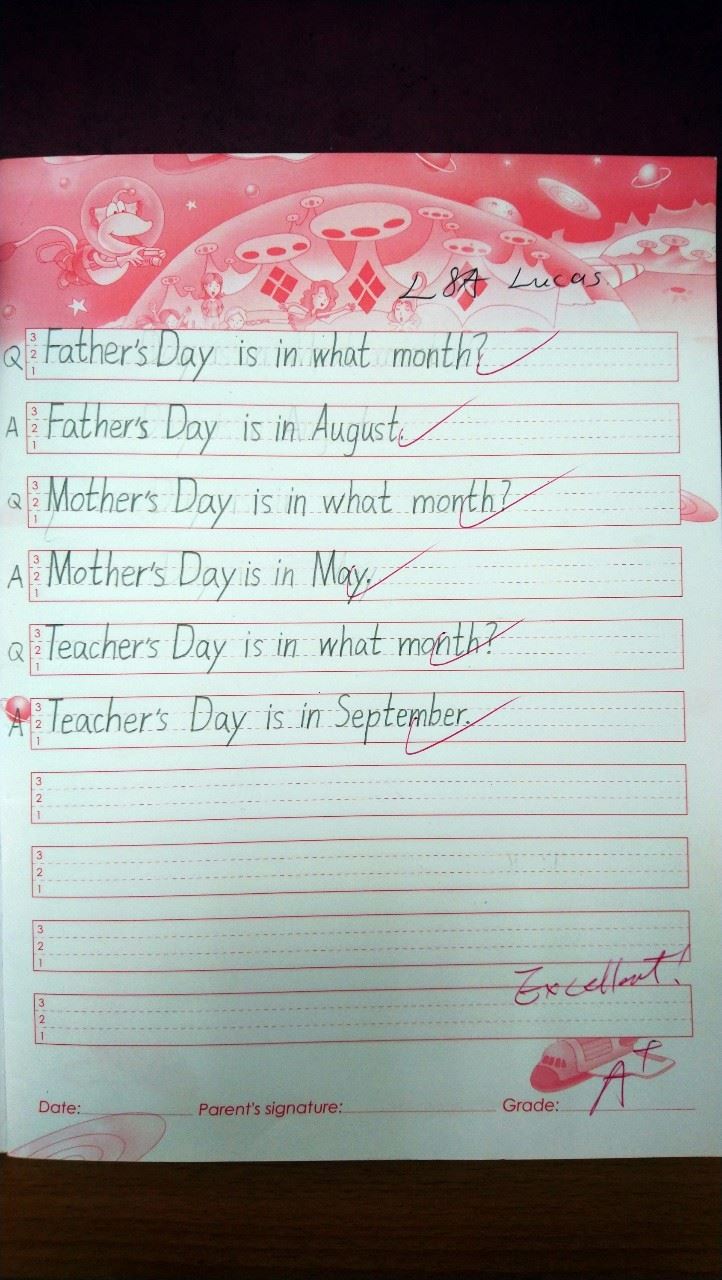 L8A Lucas
Q 3 2 1 Father's Day is in what month?
A 3 2 1 Father's Day is in August.
Q 3 2 1 Mother's Day is in what month?
A 3 2 1 Mother's Day is in May.
Q 3 2 1 Teacher's Day is in what month?
A 3 2 1 Teacher's Day is in September.
3 2 1
3 2 1
3 2 1
Excellent!
3 2 1
Date: Parent's signature: Grade: A+